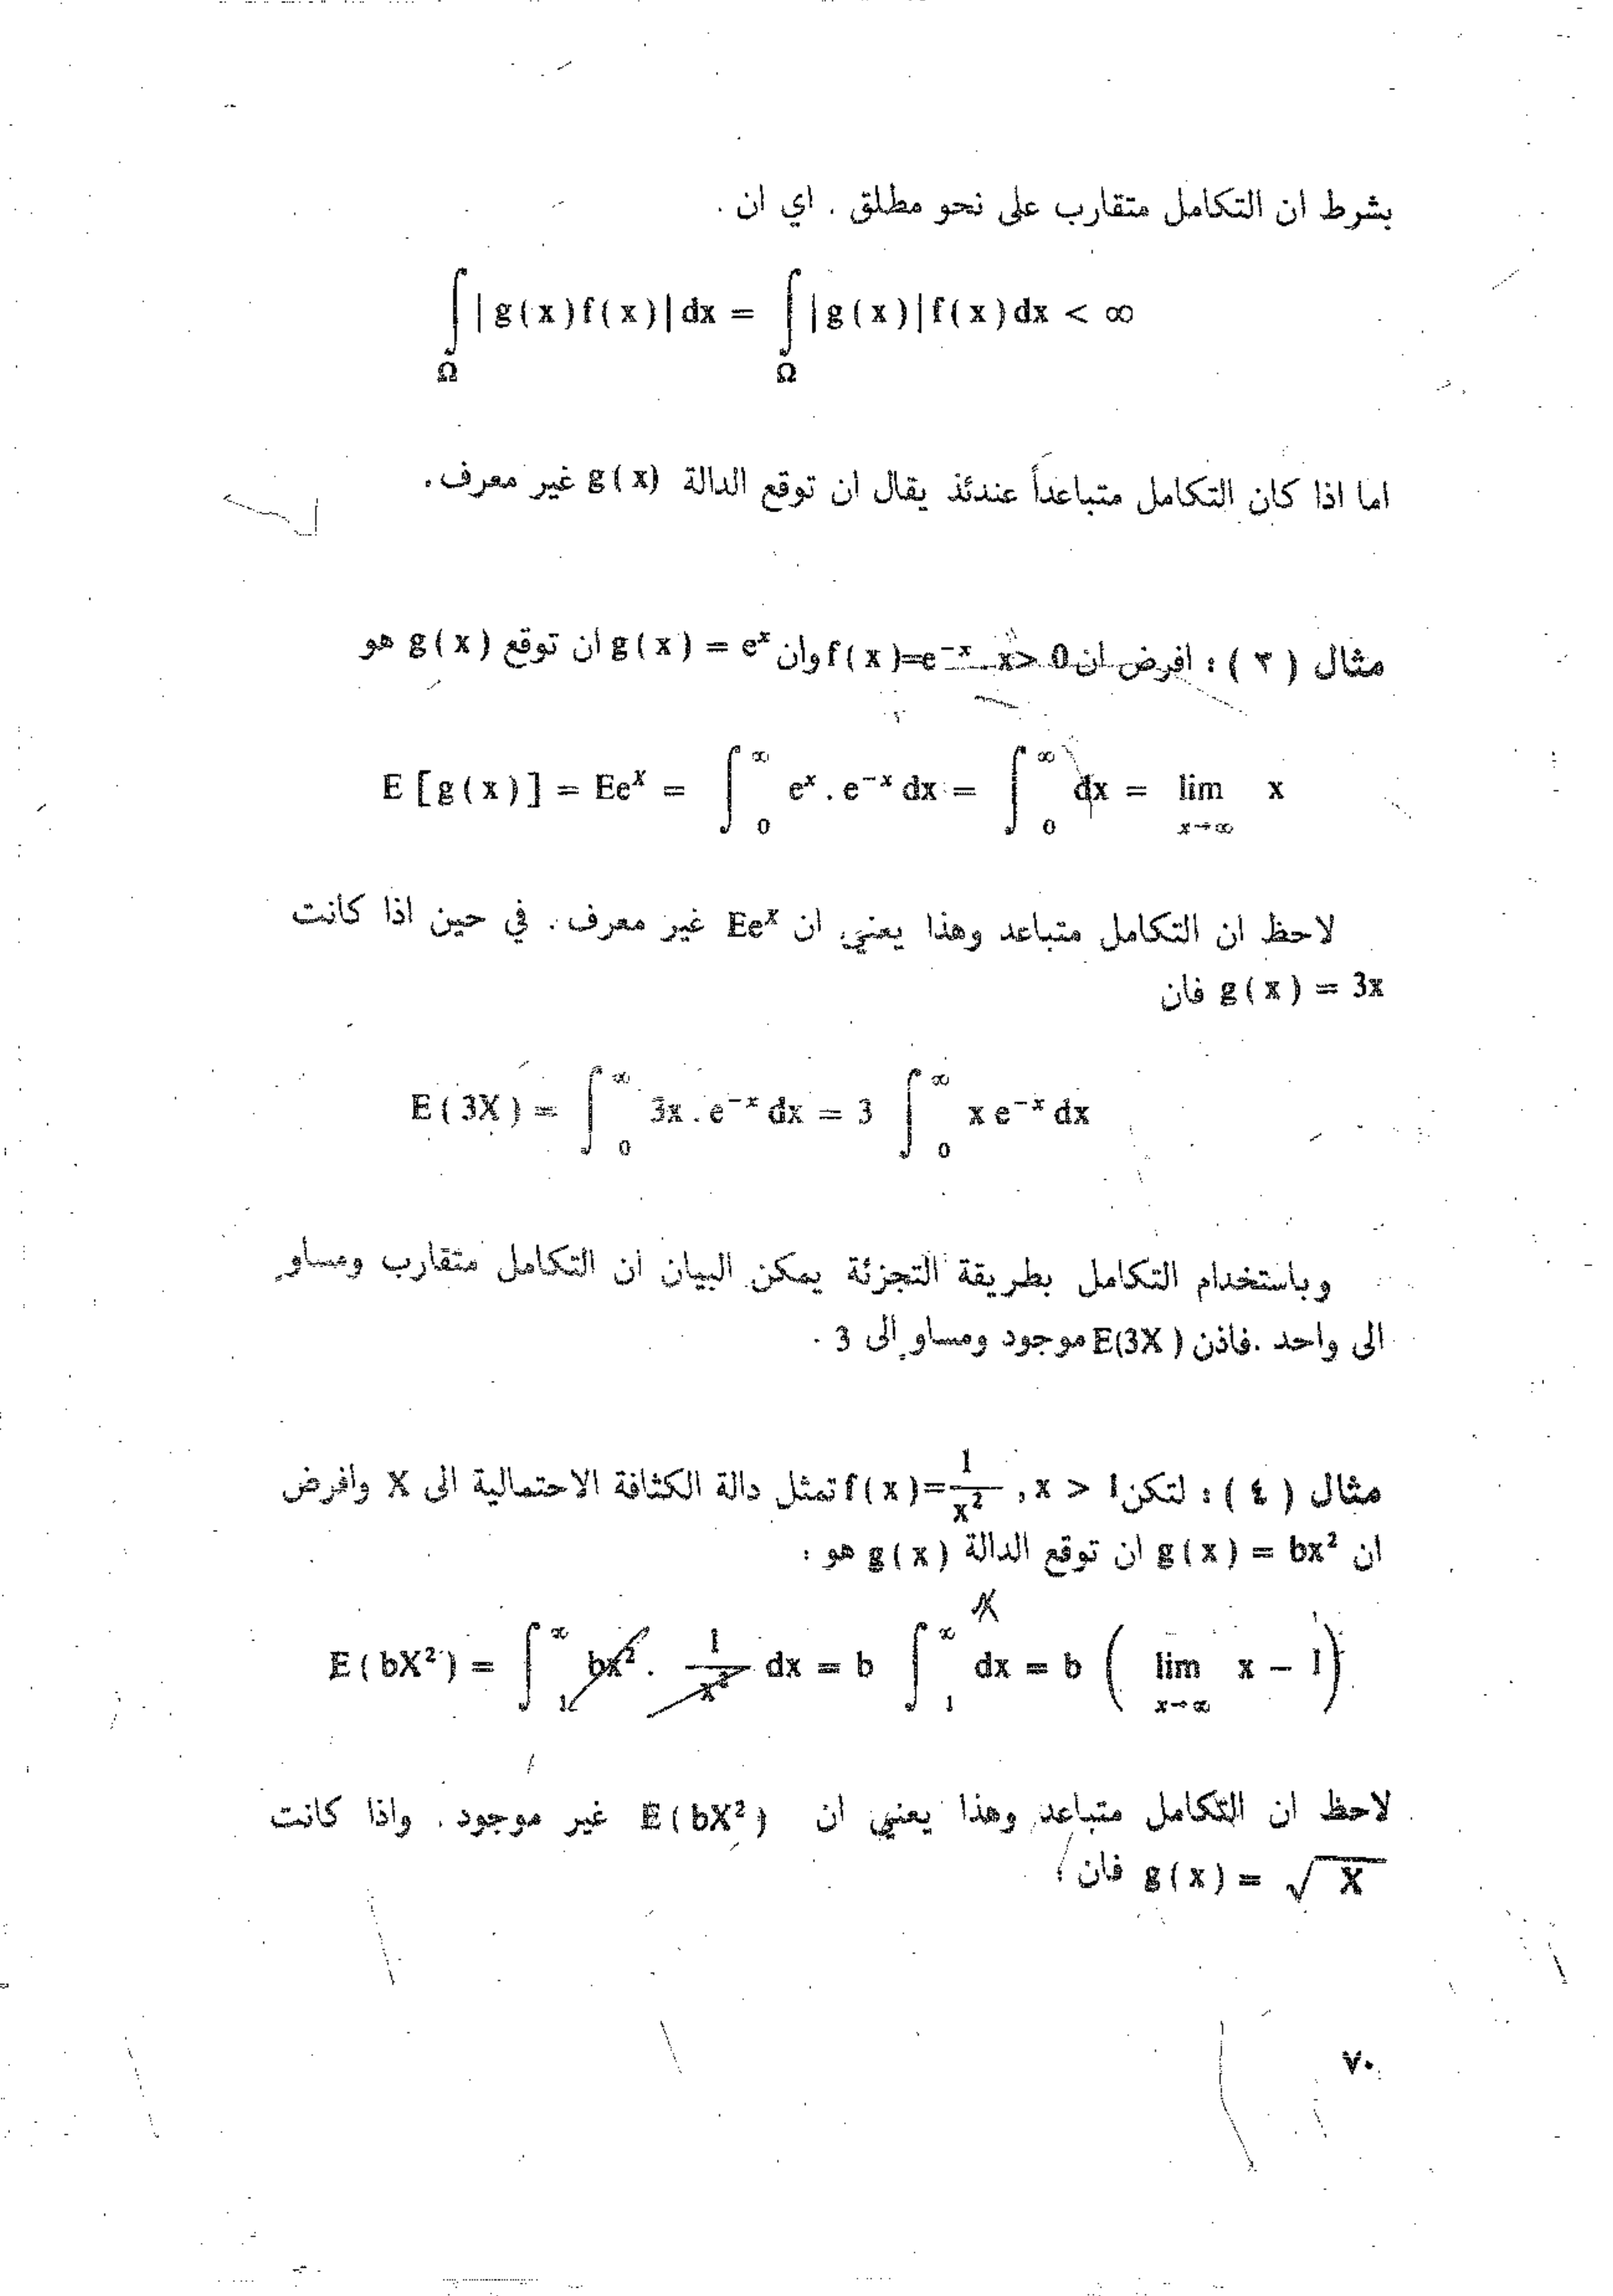 بشرط ان التكامل متقارب على نحو مطلق . اي ان .
∫_Ω | g(x) f(x) | dx = ∫_Ω | g(x) | f(x) dx < ∞
اما اذا كان التكامل متباعداً عندئذ يقال ان توقع الدالة g(x) غير معرف.
مثال ( ٣ ) : افرض ان f(x)=e^{-x}, x > 0 وان g(x) = e^x ان توقع g(x) هو
E [g(x)] = Ee^X = ∫_0^∞ e^x . e^{-x} dx = ∫_0^∞ dx = lim_{x→∞} x
لاحظ ان التكامل متباعد وهذا يعني ان Ee^X غير معرف . في حين اذا كانت
g(x) = 3x فان
E(3X) = ∫_0^∞ 3x . e^{-x} dx = 3 ∫_0^∞ x e^{-x} dx
وباستخدام التكامل بطريقة التجزئة يمكن البيان ان التكامل متقارب ومساوٍ
الى واحد . فاذن E(3X) موجود ومساوٍ الى 3 .
مثال ( ٤ ) : لتكن f(x)= 1/x² , x > 1 تمثل دالة الكثافة الاحتمالية الى X وافرض
ان g(x) = bx² ان توقع الدالة g(x) هو :
E(bX²) = ∫_1^∞ bx² . 1/x² dx = b ∫_1^∞ dx = b ( lim_{x→∞} x − 1 )
لاحظ ان التكامل متباعد وهذا يعني ان E(bX²) غير موجود . واذا كانت
g(x) = √X فان :
٧٠